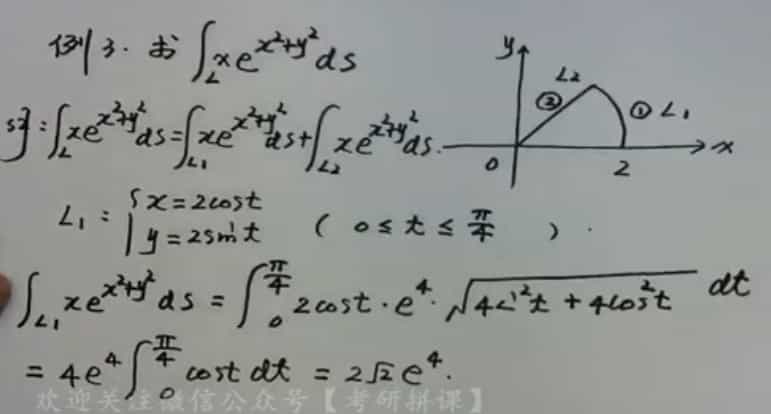 例3. 求 ∫_L xe^{x²+y²} ds
解: ∫_L xe^{x²+y²} ds = ∫_{L₁} xe^{x²+y²} ds + ∫_{L₂} xe^{x²+y²} ds.
y
L₂
② ① L₁
0 2 x
L₁ : { x = 2cost
y = 2sin t ( 0 ≤ t ≤ π/4 ) .
∫_{L₁} xe^{x²+y²} ds = ∫_0^{π/4} 2cost · e⁴ · √(4sin²t + 4cos²t) dt
= 4e⁴ ∫_0^{π/4} cost dt = 2√2 e⁴.
欢迎关注微信公众号【考研拼课】